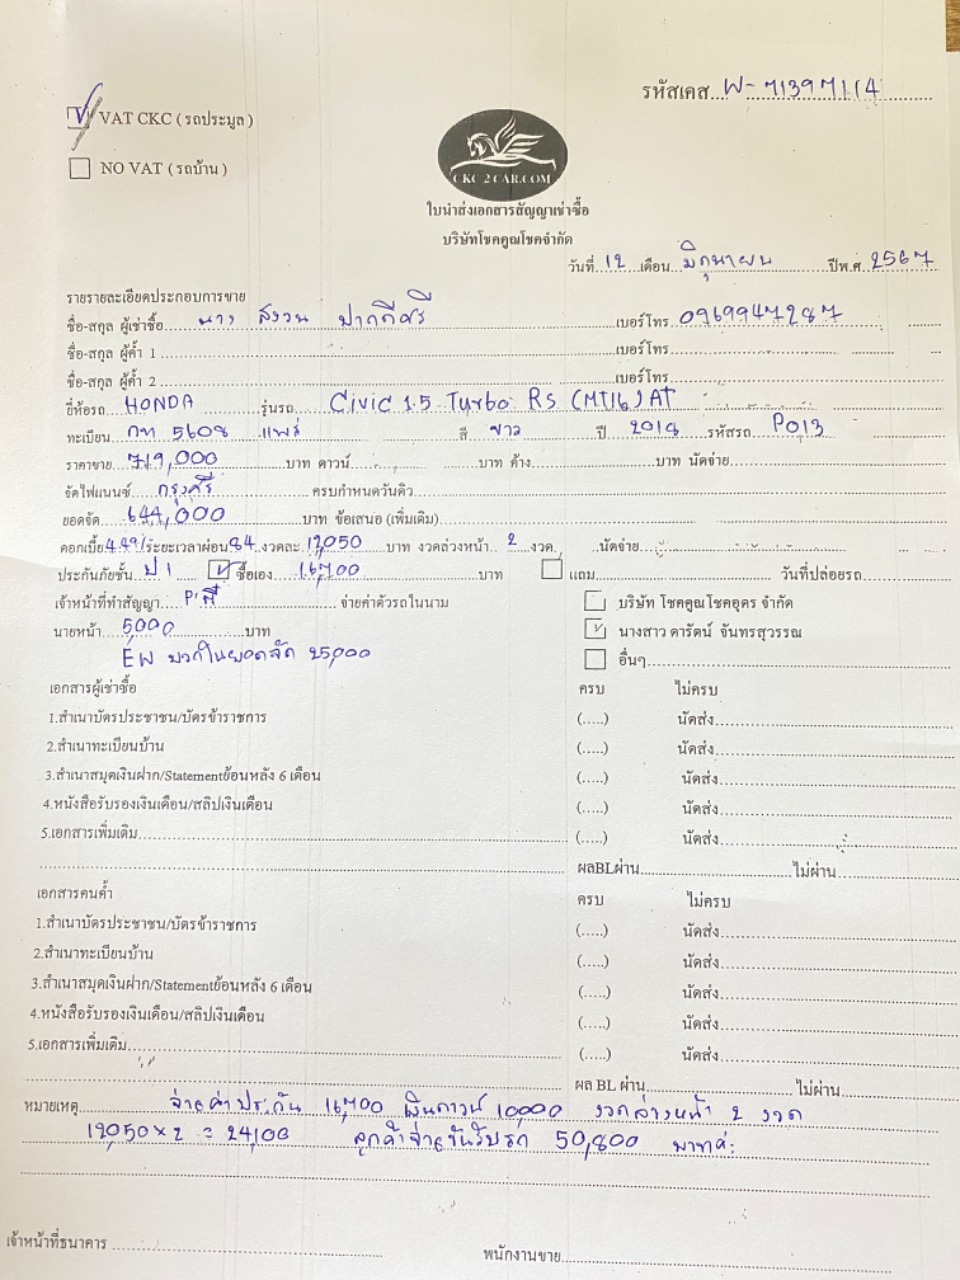 รหัสเคส...W-71397114
VAT CKC ( รถประมูล )
NO VAT ( รถบ้าน )
CKC 2 CAR.COM
ใบนำส่งเอกสารสัญญาเช่าซื้อ
บริษัทโชคคูณโชคจำกัด
วันที่ 12 เดือน มิถุนายน ปีพ.ศ 2567
รายรายละเอียดประกอบการขาย
ชื่อ-สกุล ผู้เช่าซื้อ นาง สงวน ปากดีศรี เบอร์โทร 0969947287
ชื่อ-สกุล ผู้ค้ำ 1 เบอร์โทร
ชื่อ-สกุล ผู้ค้ำ 2 เบอร์โทร
ยี่ห้อรถ HONDA รุ่นรถ Civic 1.5 Turbo RS (MY16) AT
ทะเบียน กท 5608 แพร่ สี ขาว ปี 2018 รหัสรถ P013
ราคาขาย 719,000 บาท ดาวน์ บาท ค้าง บาท นัดจ่าย
จัดไฟแนนซ์ กรุงศรี ครบกำหนดวันคิว
ยอดจัด 644,000 บาท ข้อเสนอ (เพิ่มเติม)
ดอกเบี้ย 4.49 /ระยะเวลาผ่อน 84 งวดละ 12,050 บาท งวดล่วงหน้า 2 งวด นัดจ่าย
ประกันภัยชั้น ป1 ซื้อเอง 16,700 บาท แถม วันที่ปล่อยรถ
เจ้าหน้าที่ทำสัญญา P'สี่ จ่ายค่าตัวรถในนาม บริษัท โชคคูณโชคอุดร จำกัด
นายหน้า 5,000 บาท นางสาว ดารัตน์ จันทรสุวรรณ
EW บวกในยอดจัด 25,000 อื่นๆ
เอกสารผู้เช่าซื้อ ครบ ไม่ครบ
1.สำเนาบัตรประชาชน/บัตรข้าราชการ (.....) นัดส่ง
2.สำเนาทะเบียนบ้าน (.....) นัดส่ง
3.สำเนาสมุดเงินฝาก/Statementย้อนหลัง 6 เดือน (.....) นัดส่ง
4.หนังสือรับรองเงินเดือน/สลิปเงินเดือน (.....) นัดส่ง
5.เอกสารเพิ่มเติม (.....) นัดส่ง
ผลBLผ่าน ไม่ผ่าน
เอกสารคนค้ำ ครบ ไม่ครบ
1.สำเนาบัตรประชาชน/บัตรข้าราชการ (.....) นัดส่ง
2.สำเนาทะเบียนบ้าน (.....) นัดส่ง
3.สำเนาสมุดเงินฝาก/Statementย้อนหลัง 6 เดือน (.....) นัดส่ง
4.หนังสือรับรองเงินเดือน/สลิปเงินเดือน (.....) นัดส่ง
5.เอกสารเพิ่มเติม (.....) นัดส่ง
ผล BL ผ่าน ไม่ผ่าน
หมายเหตุ จ่ายค่าประกัน 16,700 เงินดาวน์ 10,000 งวดล่วงหน้า 2 งวด
12,050 x 2 = 24,100 ลูกค้าจ่ายวันรับรถ 50,800 บาทค่ะ
เจ้าหน้าที่ธนาคาร พนักงานขาย